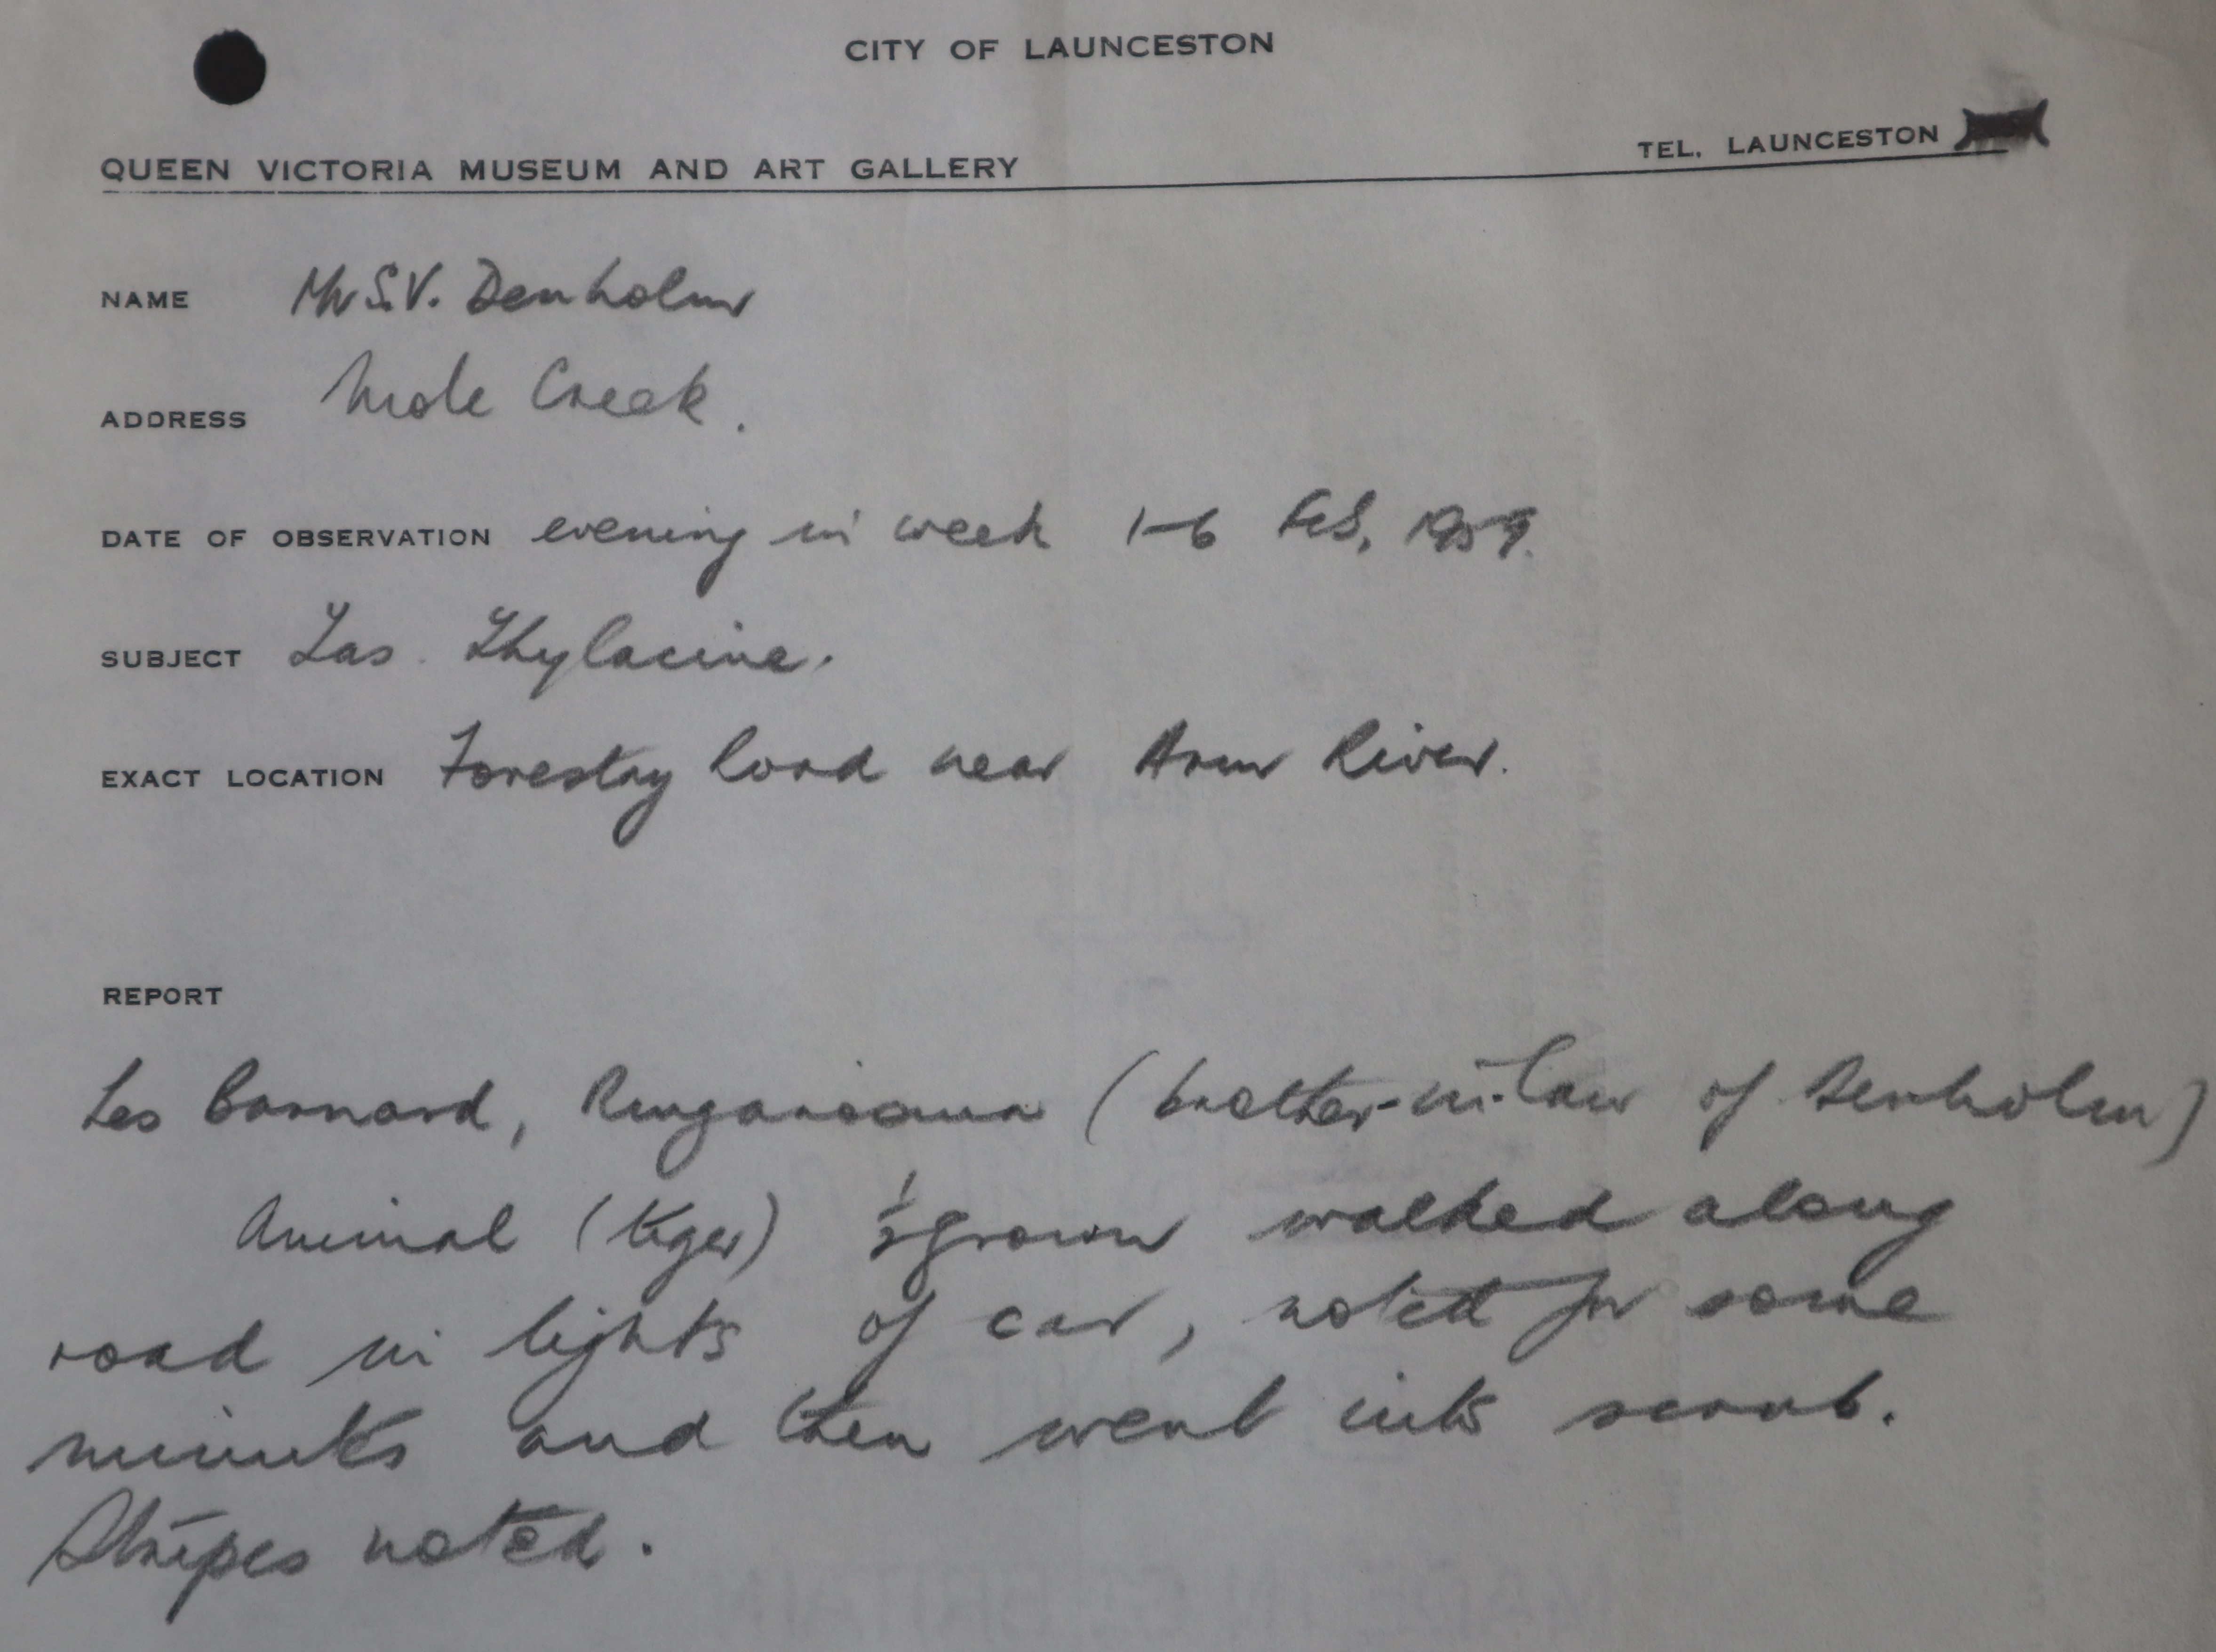 CITY OF LAUNCESTON
TEL. LAUNCESTON
QUEEN VICTORIA MUSEUM AND ART GALLERY
NAME Mr S.V. Denholm
ADDRESS Mole Creek.
DATE OF OBSERVATION evening in week 1-6 Feb, 1959.
SUBJECT Tas. Thylacine.
EXACT LOCATION Forestry Road near Arm River.
REPORT
Les Barnard, Ringarooma (brother-in-law of Denholm)
Animal (tiger) ½ grown walked along
road in lights of car, noted for some
minutes and then went into scrub.
Stripes noted.